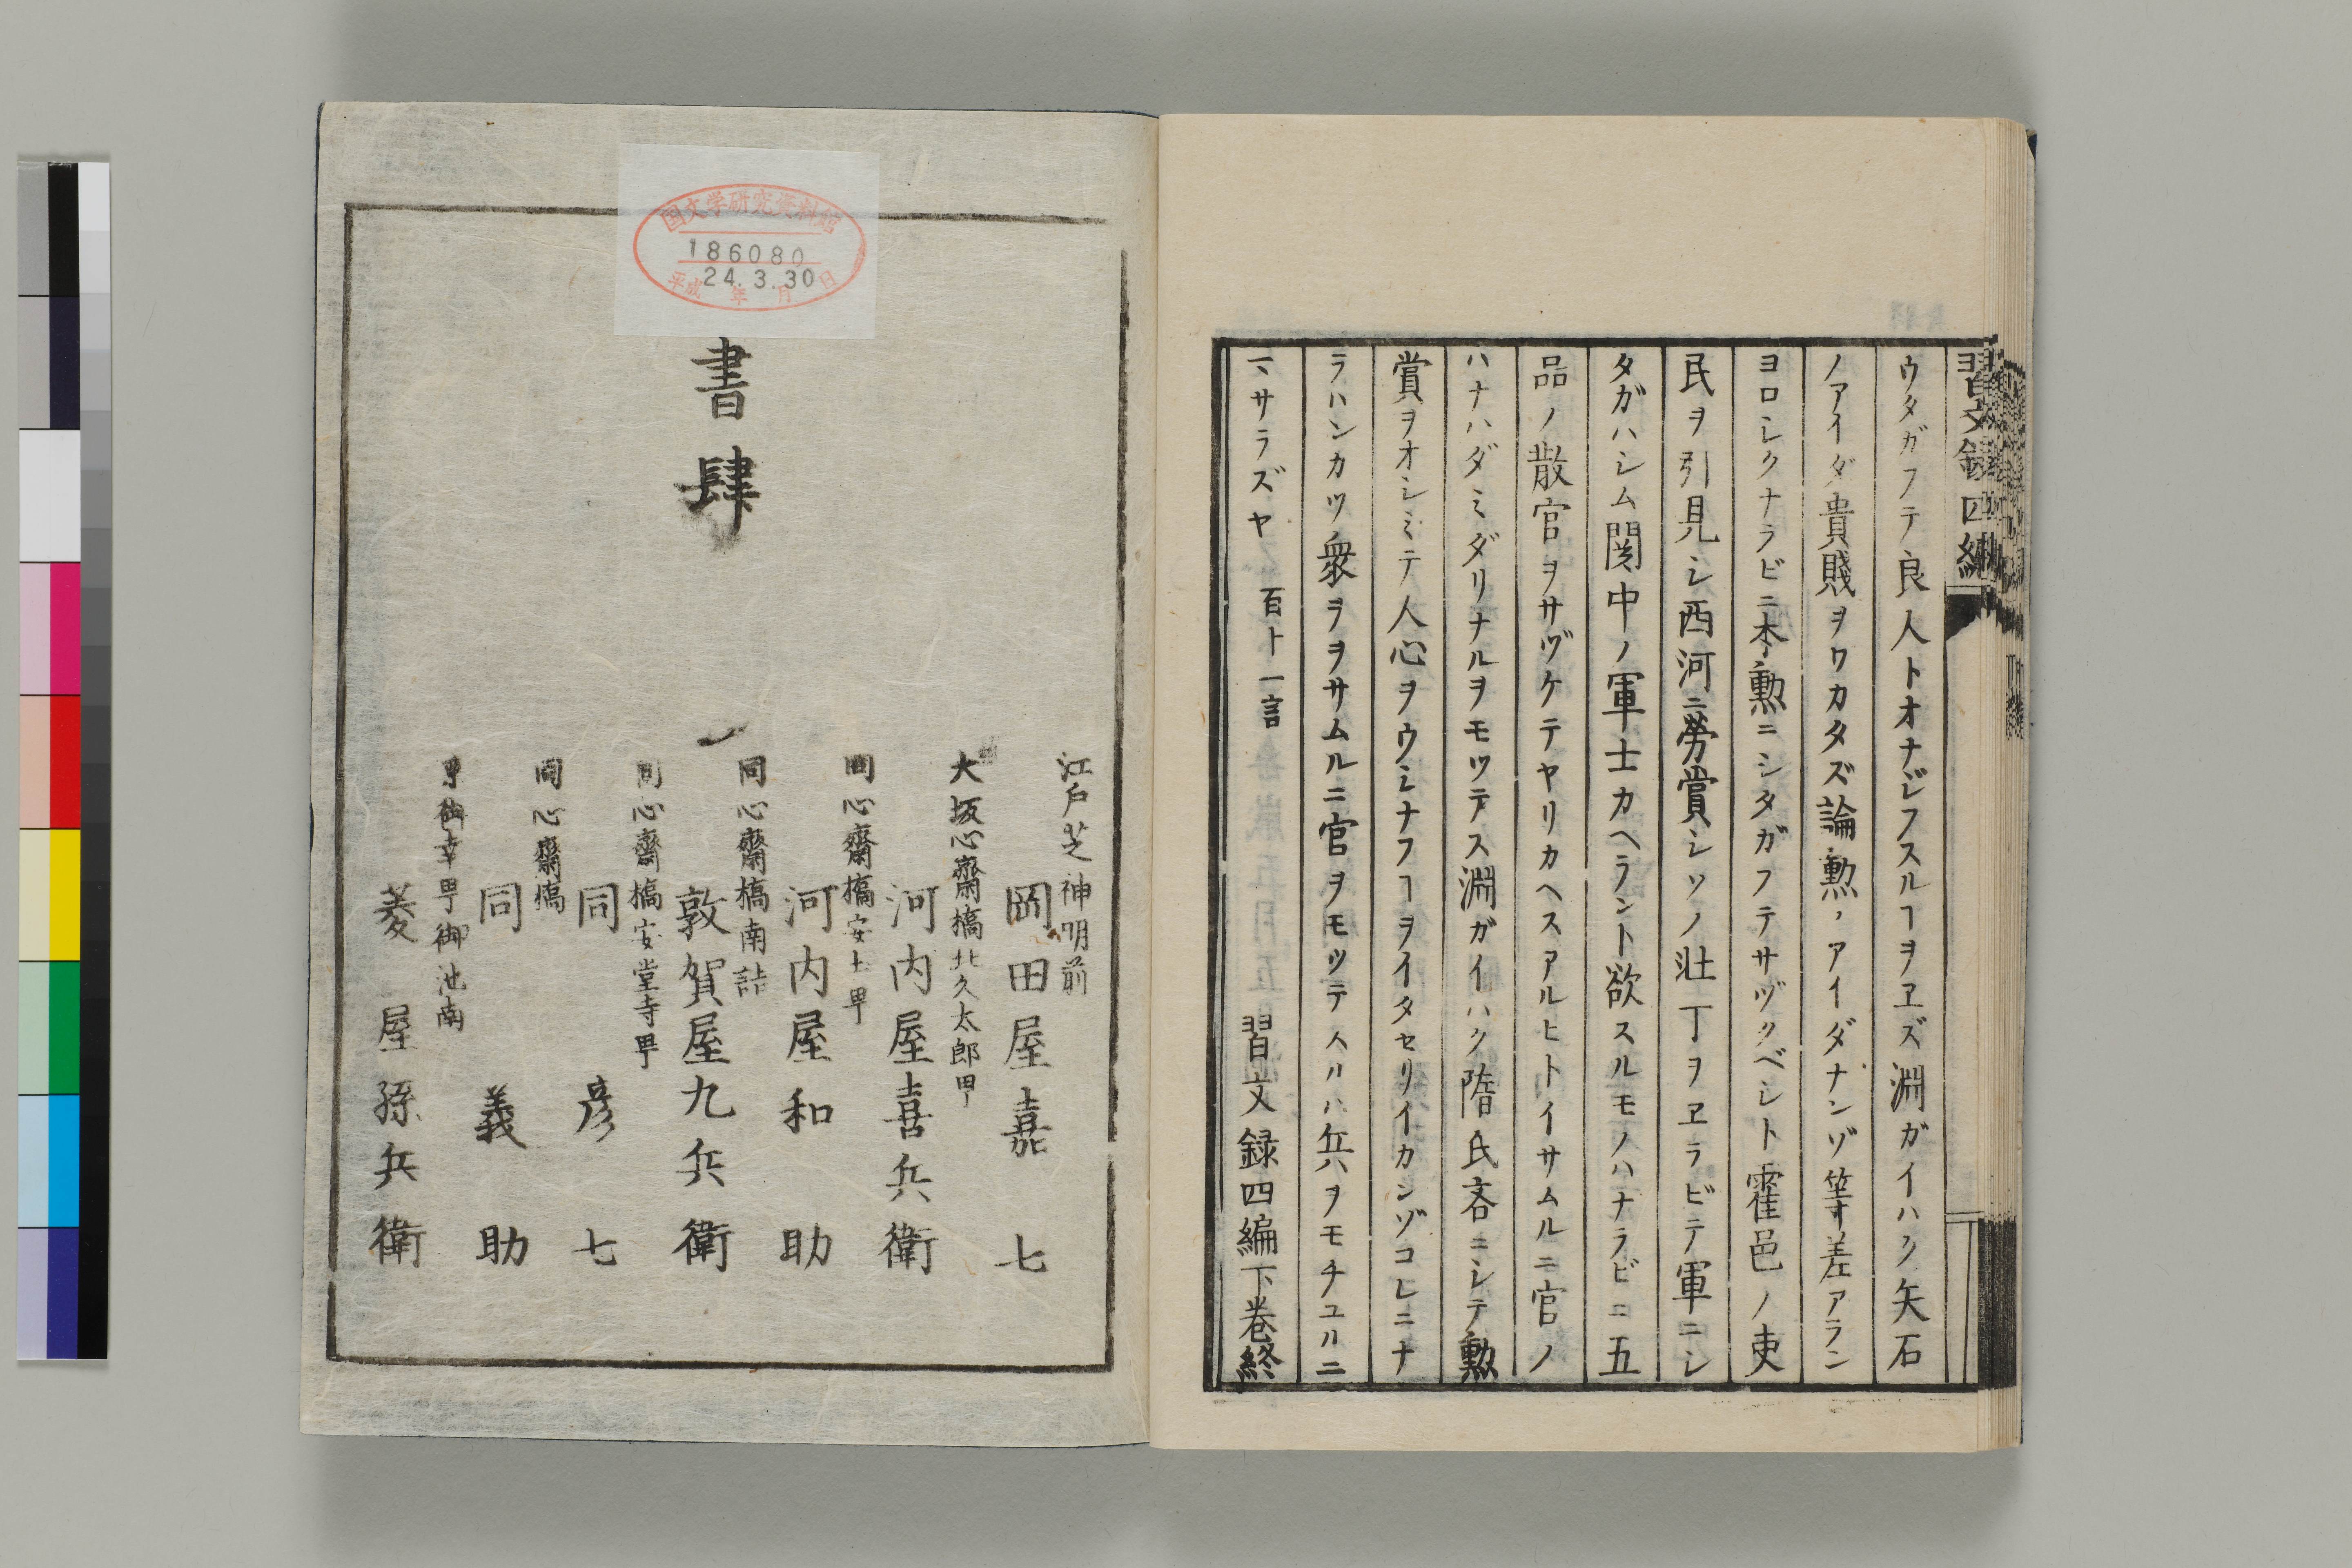 習文録四編
ウタガフテ良人トオナジフスルヿヲヱズ淵ガイハク矢石
ノアイダ貴賤ヲワカタズ論勲ノアイダナンゾ等差アラン
ヨロシクナラビニ本勲ニシタガフテサヅクベシト霍邑ノ吏
民ヲ引見シ西河ニ労賞シソノ壮丁ヲヱラビテ軍ニシ
タガハシム関中ノ軍士カヘラント欲スルモノハナラビニ五
品ノ散官ヲサヅケテヤリカヘスアルヒトイサムルニ官ノ
ハナハダミダリナルヲモツテス淵ガイハク隋氏吝ニシテ勲
賞ヲオシミテ人心ヲウシナフヿヲイタセリイカンゾコレニナ
ラハンカツ衆ヲヲサムルニ官ヲモツテスルハ兵ヲモチユルニ
マサラズヤ 百卜一言 習文録四編下巻終
国文学研究資料館
186080
平成24年3月30日
書肆
江戸芝神明前
岡田屋嘉七
大坂心齋橋北久太郎町
河内屋喜兵衛
同心齋橋安土町
河内屋和助
同心齋橋南詰
敦賀屋九兵衛
同心齋橋安堂寺町
同彦七
同心齋橋
同義助
御幸町御池南
菱屋孫兵衛